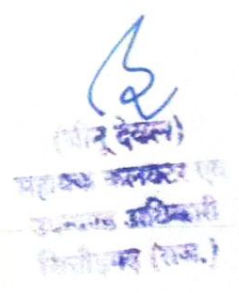 (बीनू देवल)
सहायक कलक्टर एवं
उपखण्ड अधिकारी
(राज.)